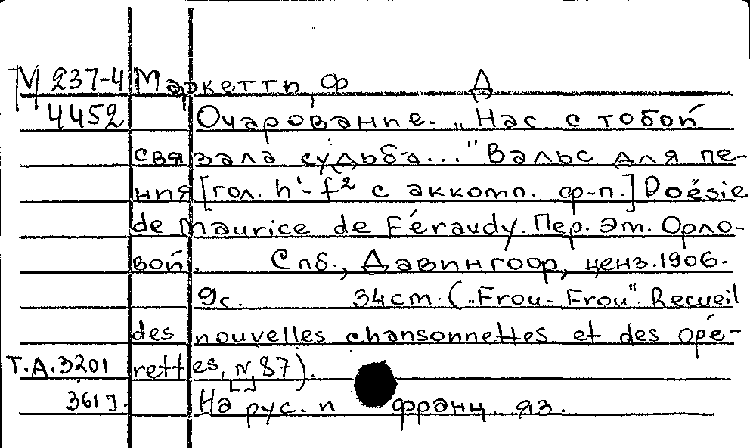 М 237-4 Маркетти, Ф Д
4452 Очарование. „Нас с тобой
связала судьба..." Вальс для пе-
ния [гол. h'-f² с аккомп. ф-п.] Poésie
de Maurice de Féraudy. Пер. Эм. Орло-
вой. Спб., Давингоф, ценз. 1906.
9с. 34cm. („Frou-Frou". Recueil
des nouvelles chansonnettes et des opé-
Т.А.3201 rettes, N 87).
361 На рус. и франц. яз.